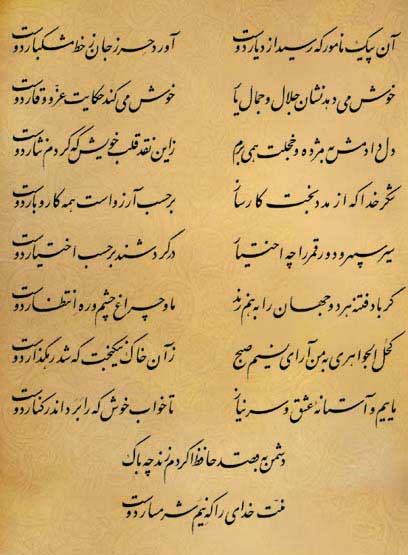 آن پیک نامور که رسید از دیار دوست آورد حرز جان ز خط مشکبار دوست
خوش می دهد نشان جلال و جمال یار خوش می کند حکایت عز و وقار دوست
دل دادمش به مژده و خجلت همی برم زین نقد قلب خویش که کردم نثار دوست
شکر خدا که از مدد بخت کارساز بر حسب آرزو است همه کار و بار دوست
سیر سپهر و دور قمر را چه اختیار در گردشند بر حسب اختیار دوست
گر باد فتنه هر دو جهان را به هم زند ما و چراغ چشم و ره انتظار دوست
کحل الجواهری به من آر ای نسیم صبح زان خاک نیکبخت که شد رهگذار دوست
ماییم و آستانه عشق و سر نیاز تا خواب خوش که را برد اندر کنار دوست
دشمن به قصد حافظ اگر دم زند چه باک
منت خدای را که نیم شرمسار دوست